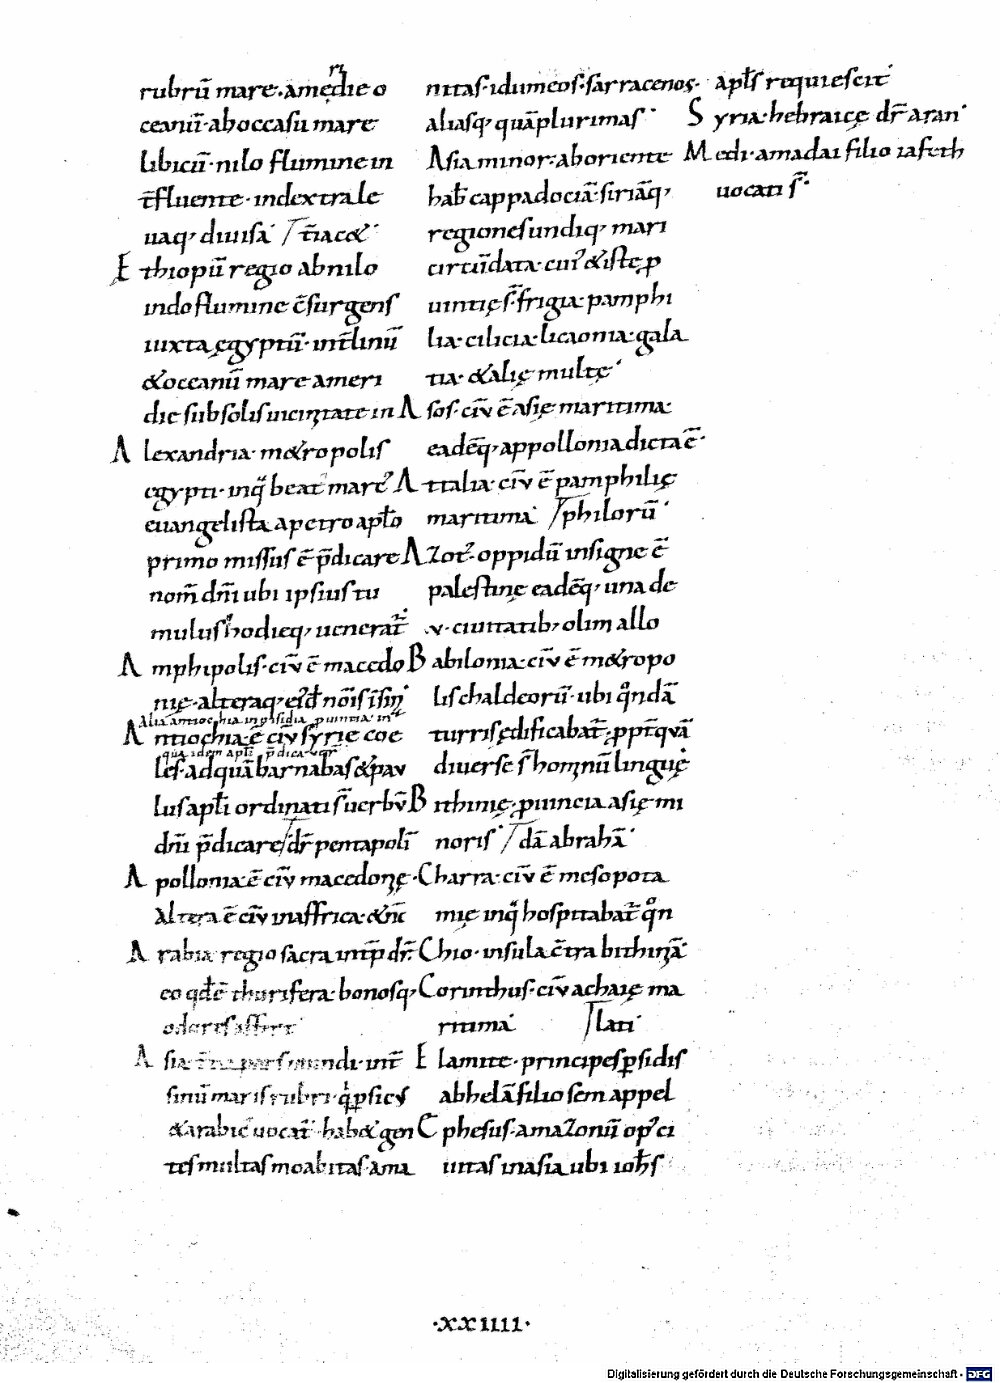 rubrū mare · amedie o
ri
ceanū · aboccasu mare
libicū · nilo flumine in
t̄fluente · indextra le
uaq, diuisa · / t̄ia c&
Ethiopū regio abnilo
indo flumine c̄surgens
iuxta ęgyptū · int̄ linū
&oceanū mare ameri
die sub solis uicinitate in
Alexandria · m&ropolis
egypti · inq̄ beat᾿ marc᾿
euangelista apetro apl̄o
primo missus ē p̄dicare
nom̄ dn̄i ubi ipsius tu
mulus hodieq, uenerat̄
Amphipolis · ciū ē macedo
nię · alteraq, ei᾿d̄ nōis ī sin᾿
Alia antiochia in pisidia puintia in
Antiochia ē ciū syrie coe
qua idem apl̄i p̄dicauer̄
les · adquā barnabas & pau
lus apl̄i ordinati s̄ uerbū
dn̄i p̄dicare / dr̄ pentapolī
Apollonia ē ciū macedonię ·
altera ē ciū inaffrica · & hic
Arabia regio sacra int̄p dr̄ ·
eo qd̄ ē thurifera · bonosq,
odores affert
Asia t̄cia pars mundi · int̄
sinū maris rubri · q̄ psicus
& arabic᾿ uocat̄ · hab& gen
tes multas moabitas · ama
nitas · idumeos · sarracenos ·
aliasq, quā plurimas ·
Asia minor : aboriente
hab̄ cappadociā · siriāq,
regiones undiq, mari
circūdata · cui᾿ & istę p
uintię s̄ · frigia · pamphi
lia · cilicia · licaonia · gala
tia · & alię multę ·
Asos · ciū ē asię maritima ·
eadēq, appollonia dicta ē ·
Attalia · ciū ē pamphilię
maritima / philorū ·
Azot᾿ · oppidū insigne ē
palestinę eadēq, una de
·v· ciuitatib, olim allo
Babilonia · ciū ē m&ropo
lis chaldeorū · ubi q̊ndā
turris ędificabat̄ · p̄pt̄ quā
diuerse s̄ hominū linguę ·
Bithinię · puincia asię mi
noris / dā abrahā ·
Charra · ciū ē mesopota
mię inq̄ hospitabat̄ q̊n
Chio · insula c̄tra bithiniā ·
Corinthus · ciū achaię ma
ritima / lati ·
Elamite · principes psidis
abhelā filio sem appel
Ephesus · amazonū op᾿ ci
uitas inasia ubi ioh̄s
apl̄s requiescit ·
Syria · hebraicę dr̄ aran ·
Medi · amadai filio iafeth
uocati s̄ ·
· XXIIII ·
Digitalisierung gefördert durch die Deutsche Forschungsgemeinschaft - DFG